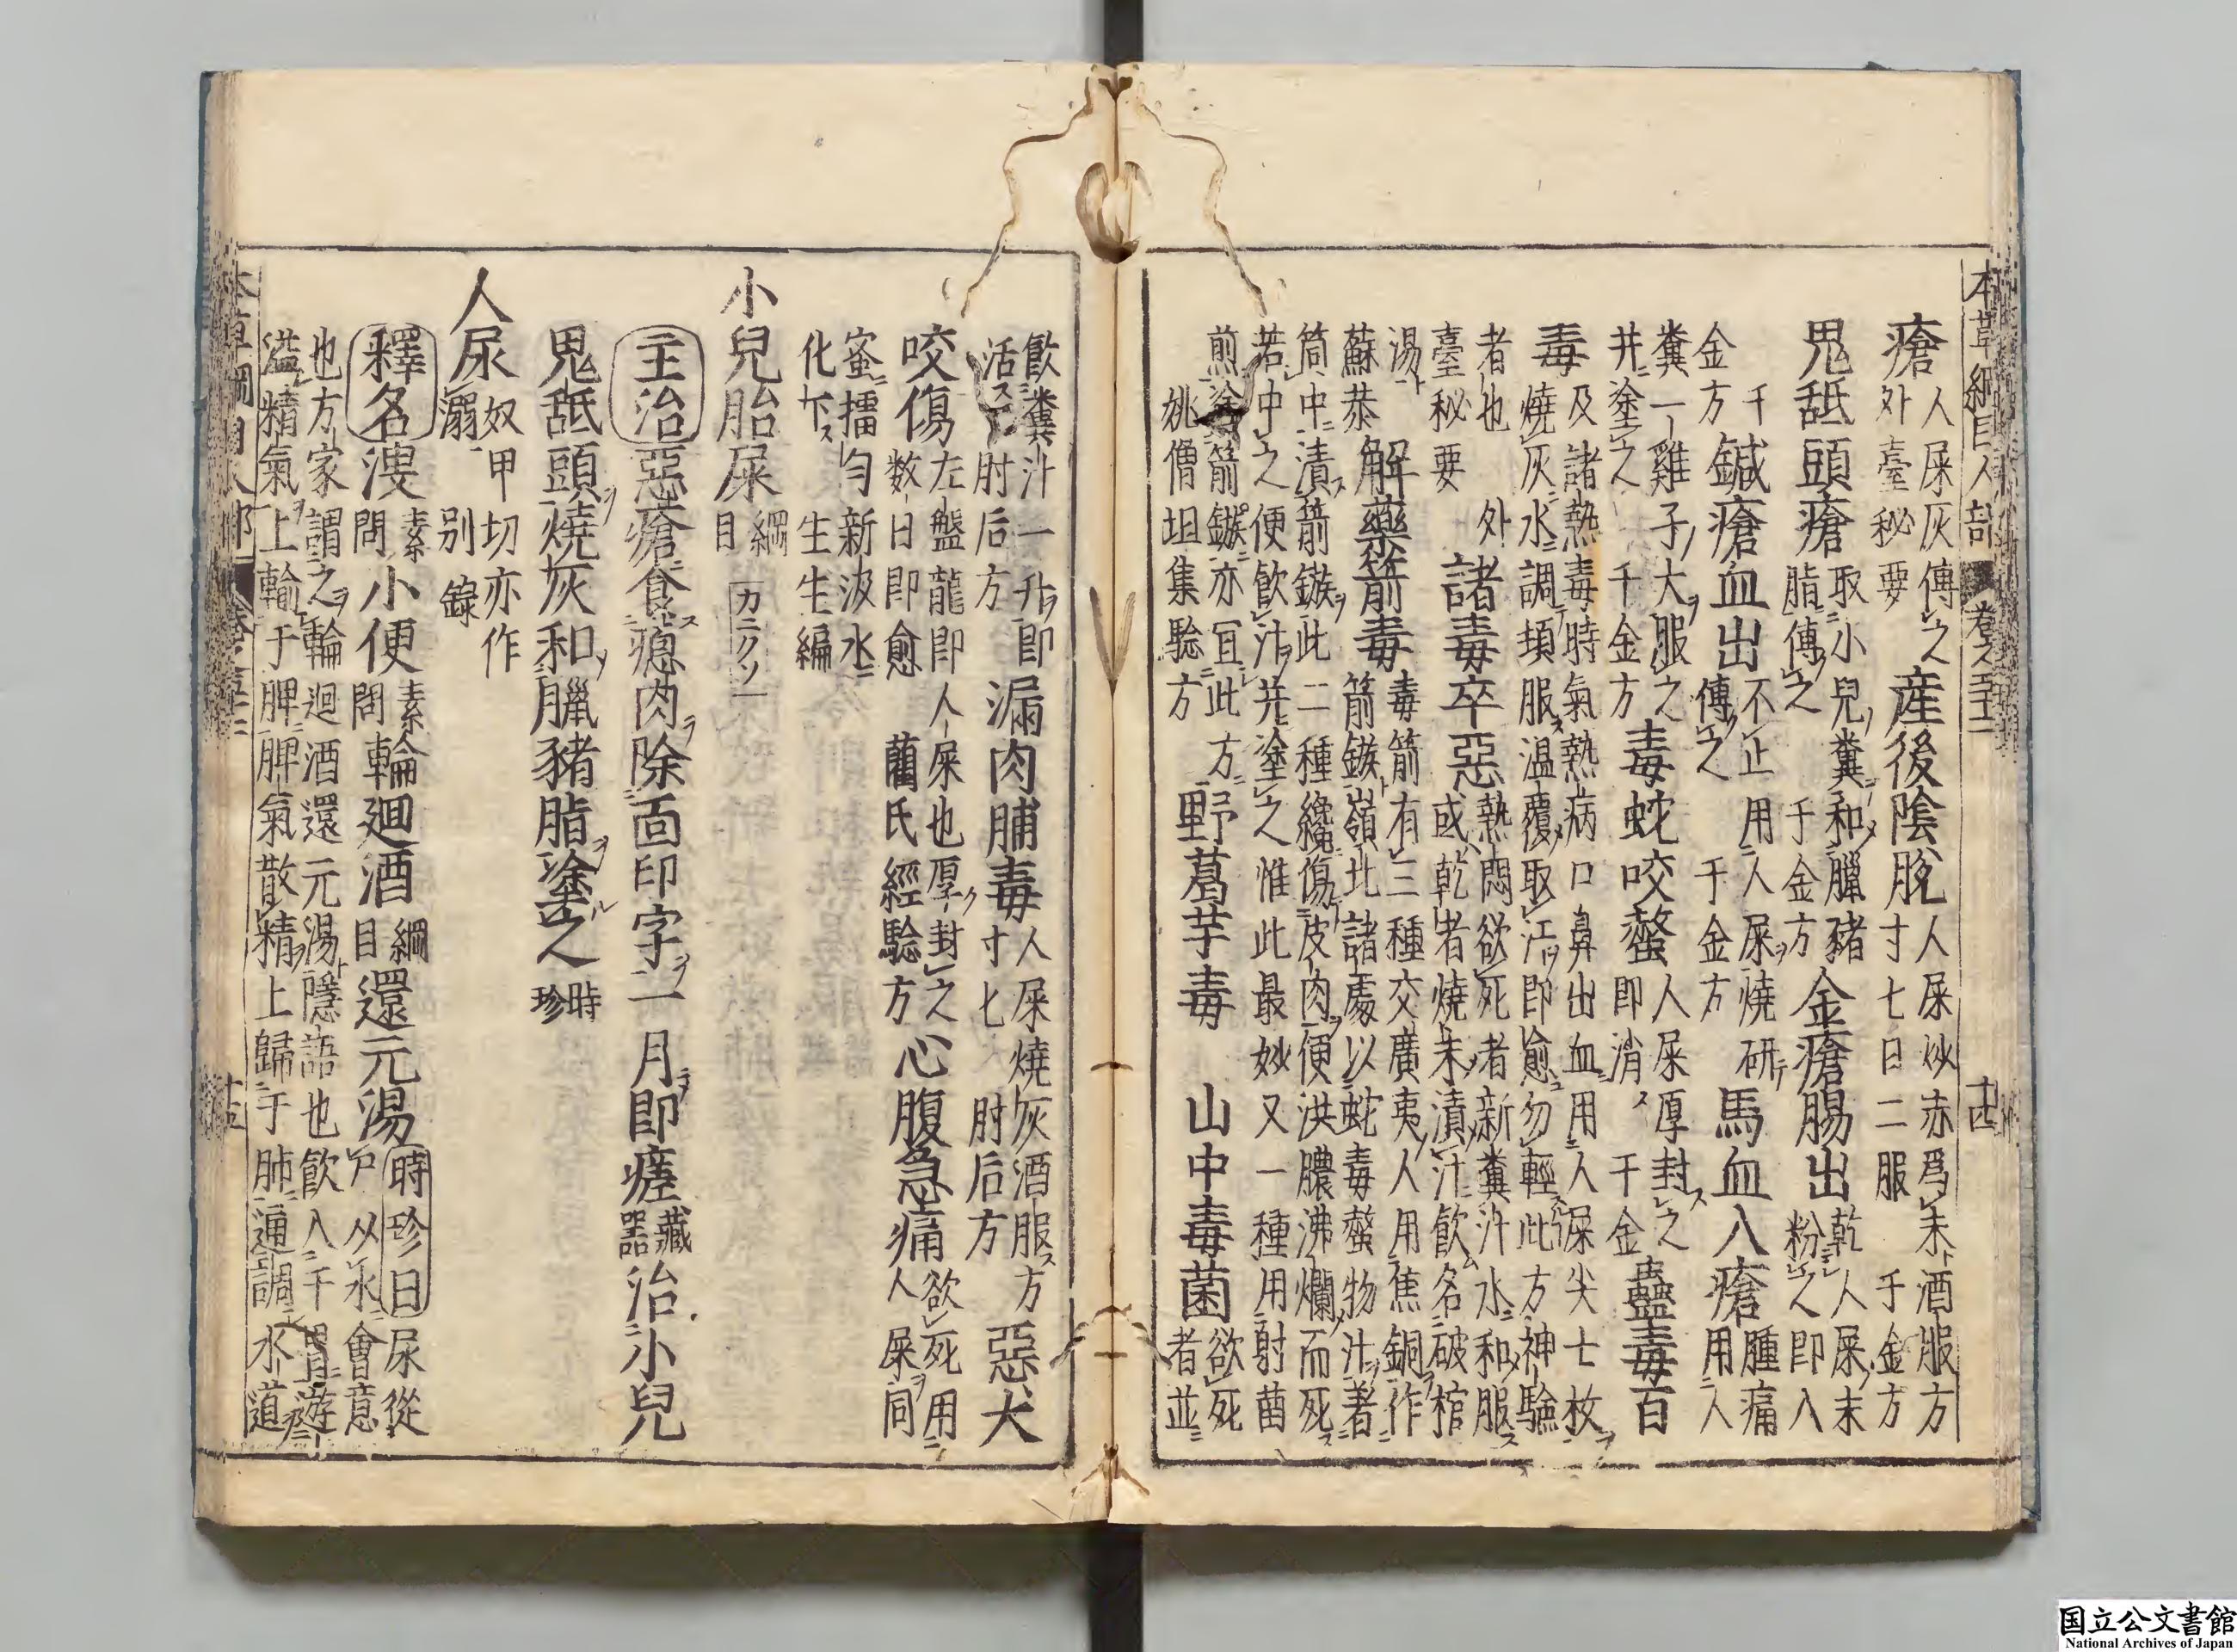 本草綱目人部 卷之五十二 十四
瘡 人屎灰傅之 外臺秘要 産後陰脫 人屎炒赤爲末酒服方 寸七日二服 千金方
鬼舐頭瘡 取小兒糞和臘猪 脂傅之 千金方 金瘡腸出 乾人屎末 粉之即入
千 金方 鍼瘡血出 不止用人屎燒研 傅之 千金方 馬血入瘡 腫痛 用人
糞一雞子大服之 并塗之 千金方 毒蛇咬螫 人屎厚封之 即消 千金 蠱毒百
毒 及諸熱毒時氣熱病口鼻出血用人屎尖七枚 燒灰水調頓服温覆取汗即愈勿輕此方神驗
者也 外臺秘要 諸毒卒惡 熱悶欲死者新糞汁水和服 或乾者燒末漬汁飲名破棺
湯 蘇恭 解藥箭毒 毒箭有三種交廣夷人用焦銅作 箭鏃嶺北諸處以蛇毒螫物汁著
筒中漬箭鏃此二種纔傷皮肉便洪膿沸爛而死 若中之便飲汁并塗之惟此最妙又一種用射菌
煎塗箭鏃亦宜此方 姚僧坦集驗方 野葛芋毒 山中毒菌 欲死者並
飲糞汁一升即 活 肘后方 漏肉脯毒 人屎燒灰酒服方 寸七 肘后方 惡犬
咬傷 左盤龍即人屎也厚封之 數日即愈 藺氏經驗方 心腹急痛 欲死用 人屎同
蜜擂勻新汲水 化下 生生編
小兒胎屎 綱目 カニクソ
主治 惡瘡食瘜肉除面印字一月即瘥 藏器 治小兒
鬼舐頭燒灰和臘猪脂塗之 時珍
人尿 奴甲切亦作 溺 別錄
釋名 溲 素問 小便 素問 輪迴酒 綱目 還元湯 時珍曰 尿從 尸从水會意
也方家謂之輪迴酒還元湯隱語也飲入于胃游
溢精氣上輸于脾脾氣散精上歸于肺通調水道
本草綱目人部 卷之五十二 十五
国立公文書館
National Archives of Japan